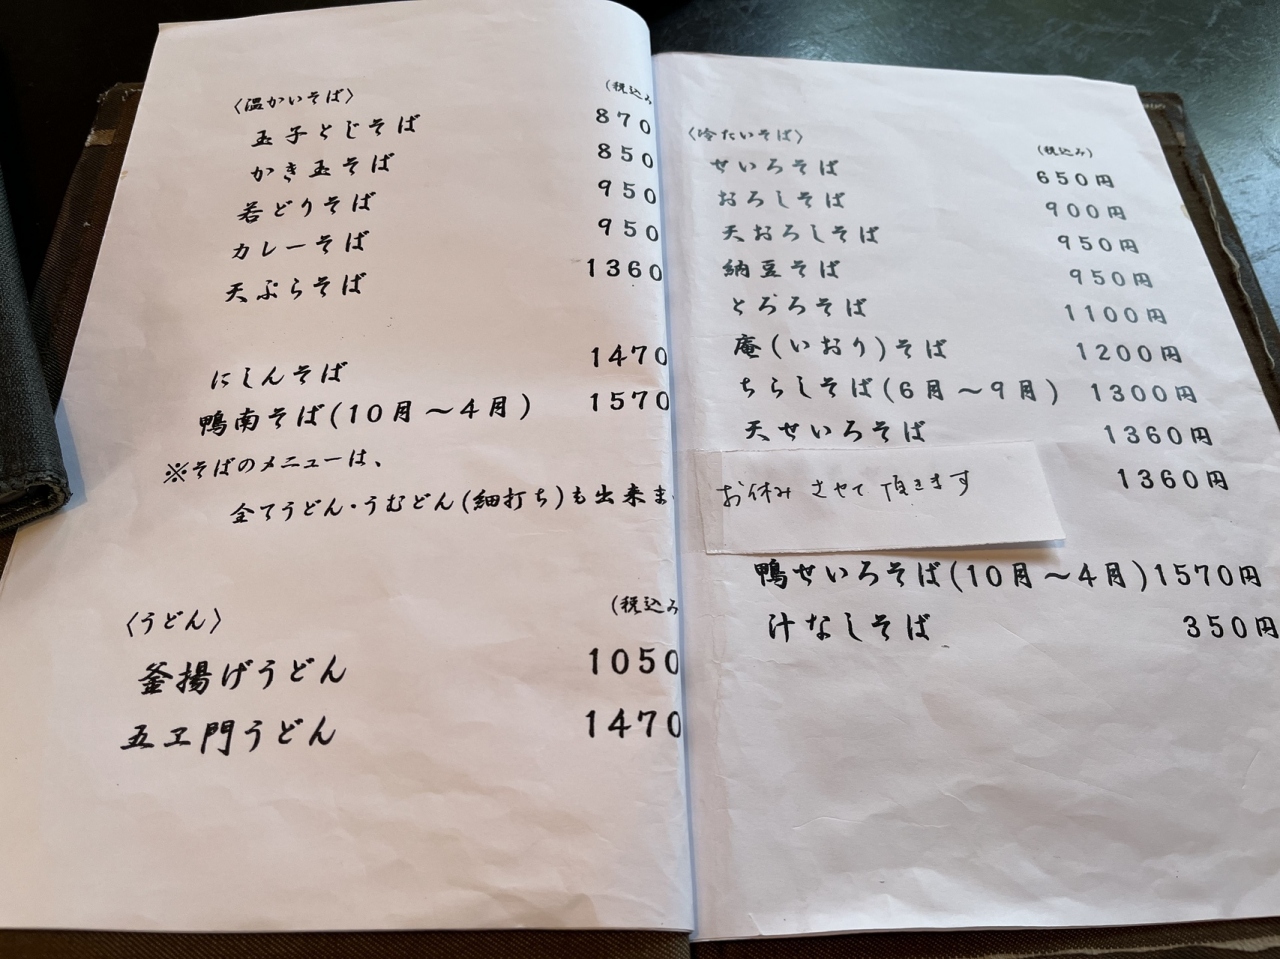 〈温かいそば〉 (税込み
玉子とじそば 870
かき玉そば 850
若どりそば 950
カレーそば 950
天ぷらそば 1360
にしんそば 1470
鴨南そば(10月～4月) 1570
※そばのメニューは、
全てうどん・うむどん(細打ち)も出来ま
〈うどん〉 (税込み
釜揚げうどん 1050
五ヱ門うどん 1470
〈冷たいそば〉 (税込み)
せいろそば 650円
おろしそば 900円
天おろしそば 950円
納豆そば 950円
とろろそば 1100円
庵(いおり)そば 1200円
ちらしそば(6月～9月) 1300円
天せいろそば 1360円
お休みさせて頂きます 1360円
鴨せいろそば(10月～4月)1570円
汁なしそば 350円